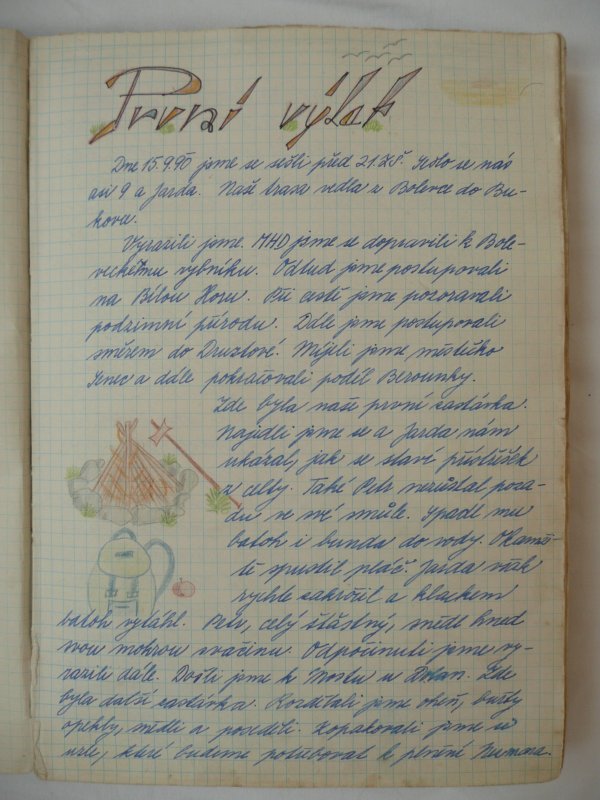 První výlet
Dne 15.9.90 jme se sešli před 21.ZŠ. Sešlo se nás
asi 9 a Jarda. Naše trasa vedla z Bolevce do Bu-
kovce.
Vyrazili jsme. MHD jsme se dopravili k Bole-
veckému rybníku. Odtud jsme postupovali
na Bílou Horu. Při cestě jsme pozorovali
podzimní přírodu. Dále jsme postupovali
směrem do Druztové. Míjeli jsme městečko
Senec a dále pokračovali podél Berounky.
Zde byla naše první zastávka.
Najedli jsme se a Jarda nám
ukázal, jak se staví přístřešek
z celty. Také Petr nezůstal poza-
du ve své smůle. Spadl mu
batoh i bunda do vody. Okamži-
tě spustil pláč. Jarda však
rychle zakročil a klackem
batoh vytáhl. Petr, celý šťastný, snědl hned
svou mokrou svačinu. Odpočinuti jsme vy-
razili dále. Došli jsme k Mostu u Dolan. Zde
byla další zastávka. Rozdělali jsme oheň, buřty
opekly, snědli a poseděli. Zopakovali jsme si
uzle, které budeme potřebovat k plnění Nováčka.